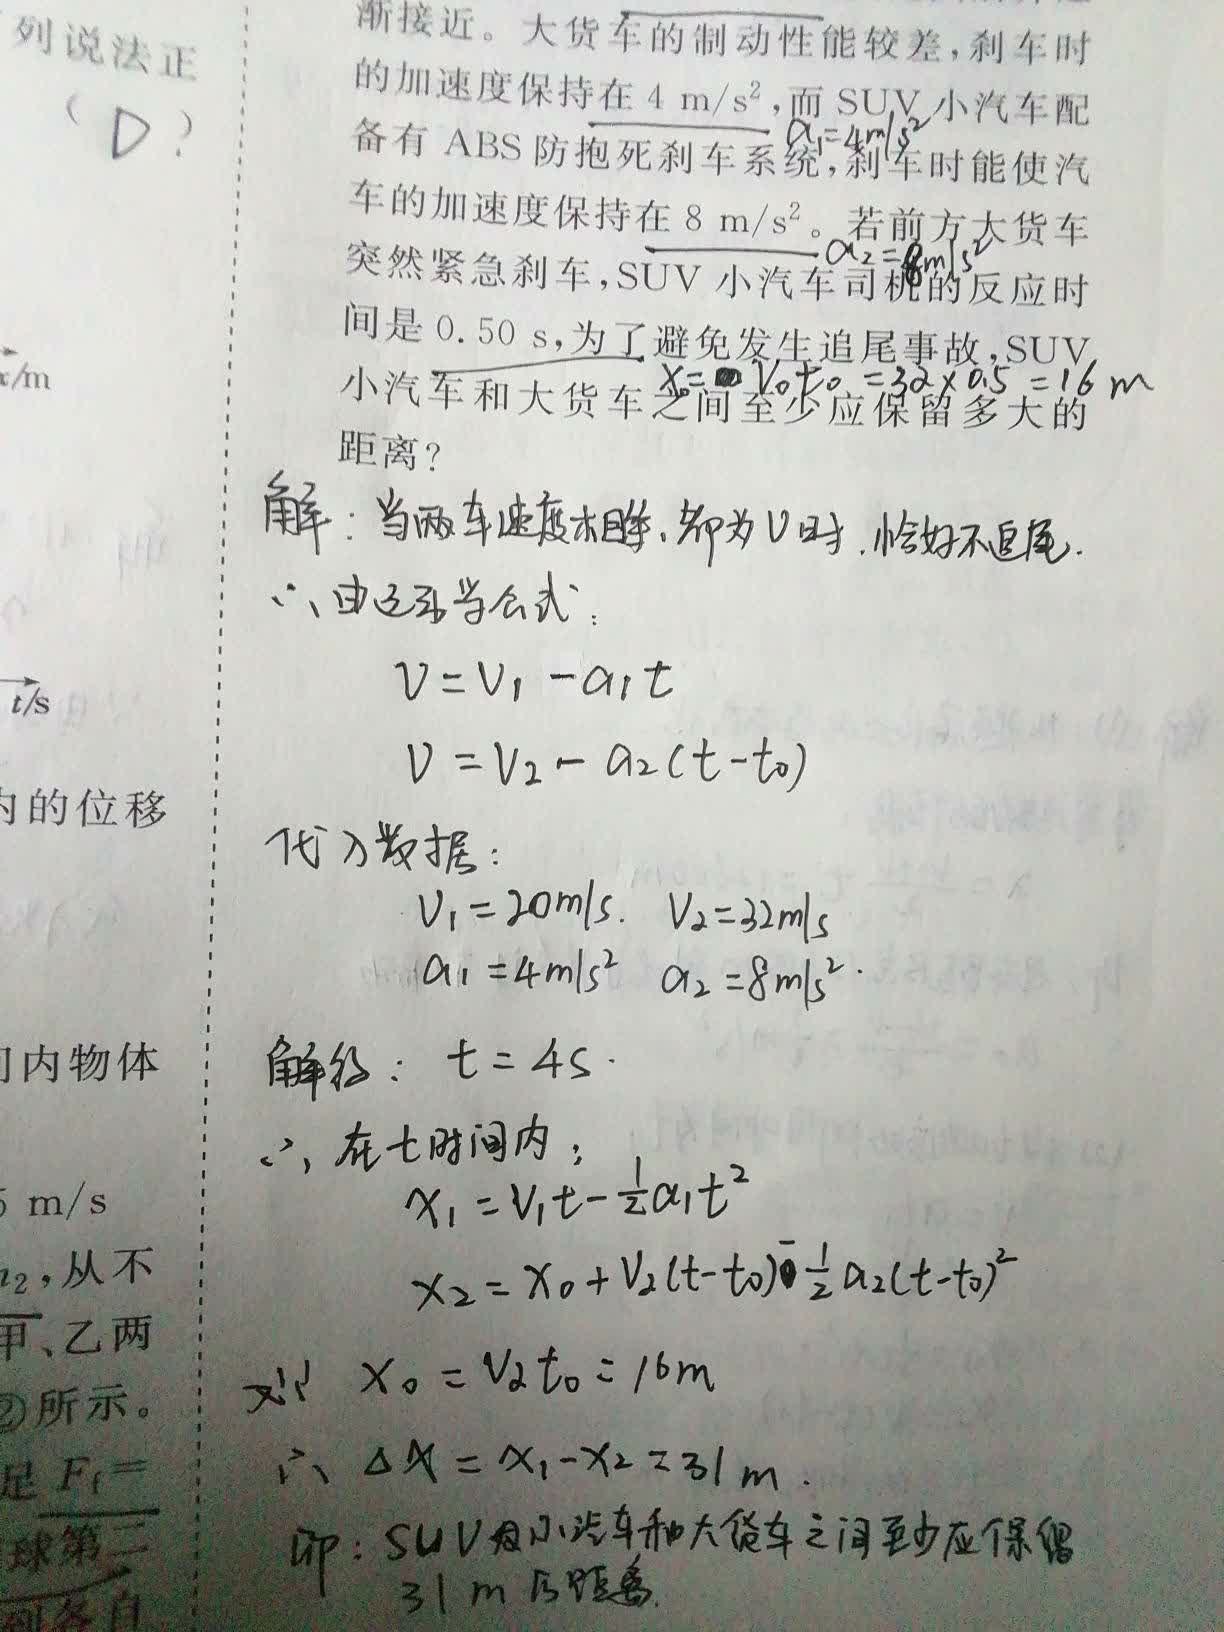 列说法正
(D)
x/m
t/s
内的位移
间内物体
5 m/s
从不
甲、乙两
②所示。
足 F₁=
球第二
到各自
渐接近。大货车的制动性能较差,刹车时
的加速度保持在 4 m/s²,而 SUV 小汽车配
a₁=4m/s²
备有 ABS 防抱死刹车系统,刹车时能使汽
车的加速度保持在 8 m/s²。若前方大货车
a₂=8m/s²
突然紧急刹车,SUV 小汽车司机的反应时
间是 0.50 s,为了避免发生追尾事故,SUV
x₀= v₀t₀ =32×0.5 =16 m
小汽车和大货车之间至少应保留多大的
距离?
解:当两车速度相等,都为V时,恰好不追尾.
∴由运动学公式:
V=V₁-a₁t
V=V₂-a₂(t-t₀)
代入数据:
V₁=20m/s. V₂=32m/s
a₁=4m/s² a₂=8m/s².
解得: t=4s.
∴在t时间内:
x₁=V₁t-½a₁t²
x₂=x₀+V₂(t-t₀)-½a₂(t-t₀)²
又∵ x₀=V₂t₀=16m
∴ Δx=x₁-x₂=31m.
即:SUV小汽车和大货车之间至少应保留
31m的距离.